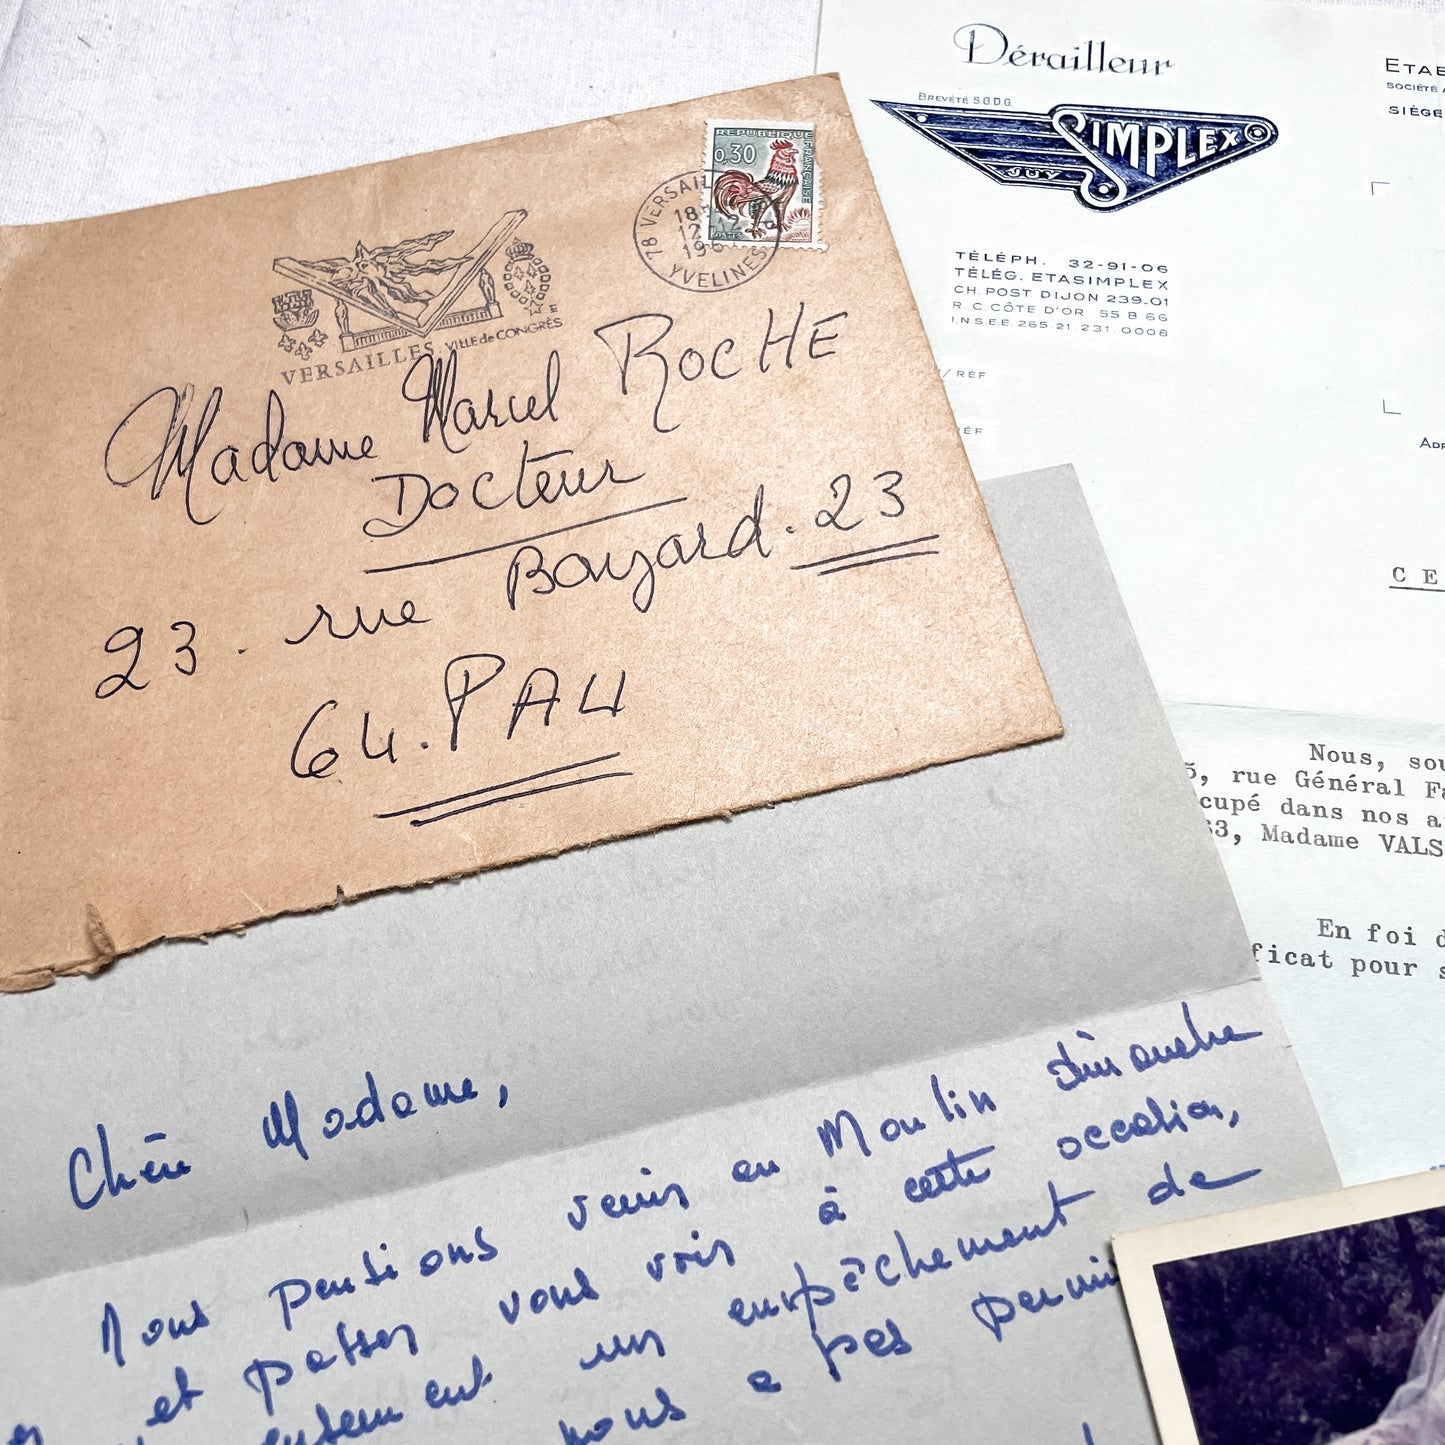 REPUBLIQUE FRANCAISE
0,30
POSTES
78 VERSAIL
YVELINES
VERSAILLES VILLE de CONGRÈS
Madame Marcel ROCHE
Docteur
23. rue Bayard. 23
64. PAU
Dérailleur
BREVETÉ S.G.D.G.
SIMPLEX
JUY
TÉLÉPH. 32-91-06
TÉLÉG. ETASIMPLEX
CH. POST. DIJON 239.01
R.C. CÔTE D'OR 55 B 66
I.N.S.E.E. 265.21.231.0008
/RÉF
ÉF
ETAB
SOCIÉTÉ A
SIÈGE
ADR
C E
Nous, sou
5, rue Général Fa
cupé dans nos a
63, Madame VALS
En foi d
ficat pour s
Chère Madame,
Nous pensions venir au Moulin dimanche
et passer vous voir à cette occasion,
un empêchement de
nous a pas permi